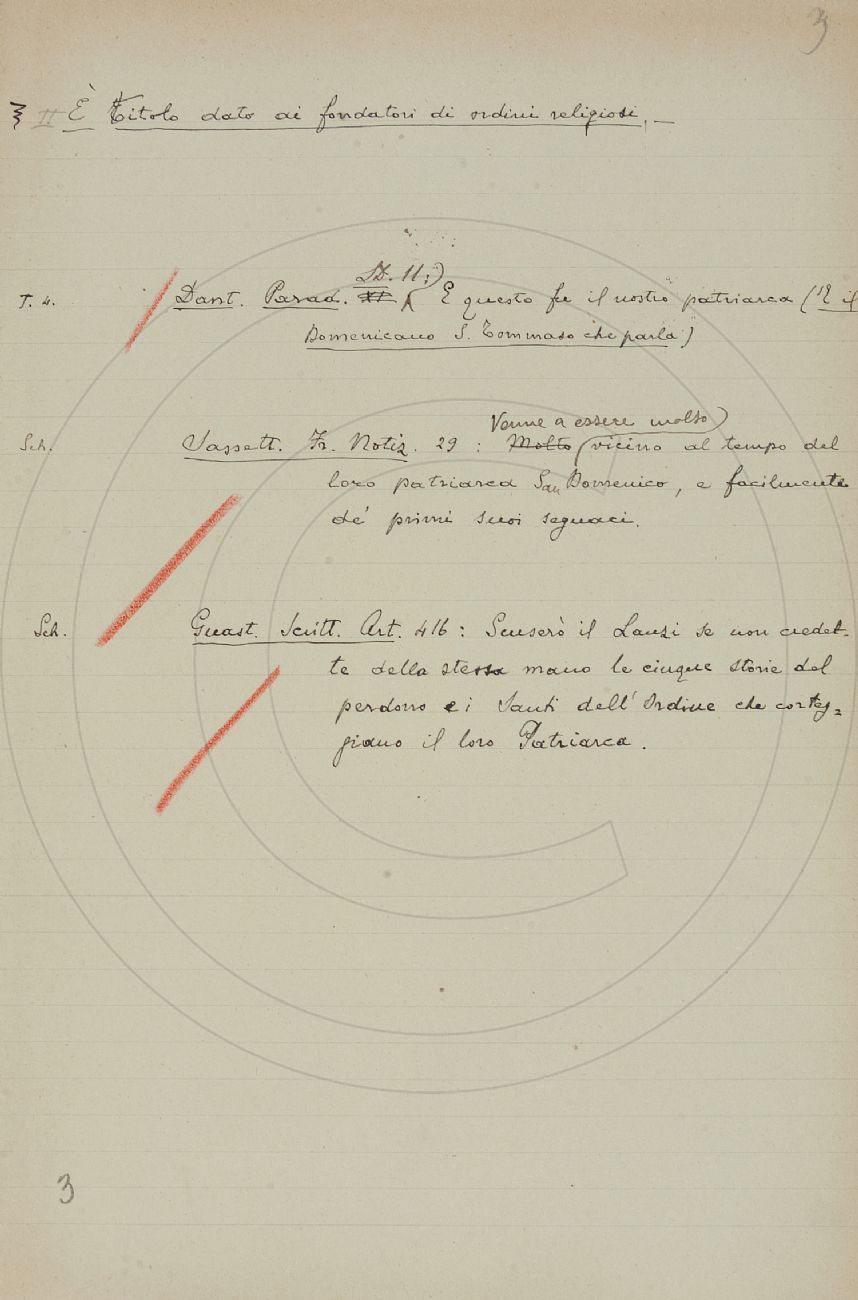 3
II È Titolo dato ai fondatori di ordini religiosi. —
T. 4. Dant. Parad. 11: E questo fu il nostro patriarca (È il
Domenicano S. Tommaso che parla)
Venne a essere molto
Sch. Sassett. Fr. Notiz. 29: Molto vicino al tempo del
loro patriarca San Domenico, e facilmente
de' primi suoi seguaci.
Sch. Guast. Scritt. Art. 416: Scuserò il Lanzi se non credet-
te della stessa mano le cinque storie del
perdono e i Santi dell'Ordine che corteg=
giano il loro Patriarca.
3